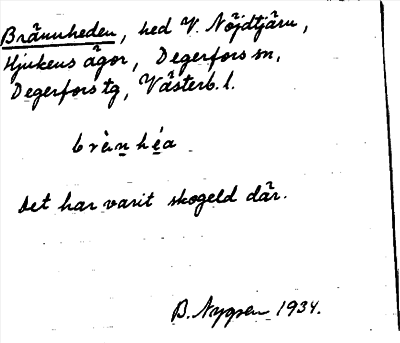 Brännheden, hed V. Nöjdtjärn,
Hjukens ägor, Degerfors sn,
Degerfors tg, Västerb. l.
brä̀nhéa
Det har varit skogeld där.
B. Nygren 1934.